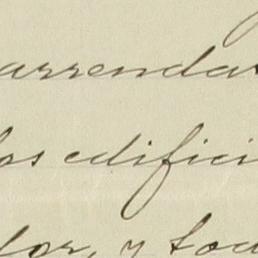 arrenda
los edifici
dor, y tou